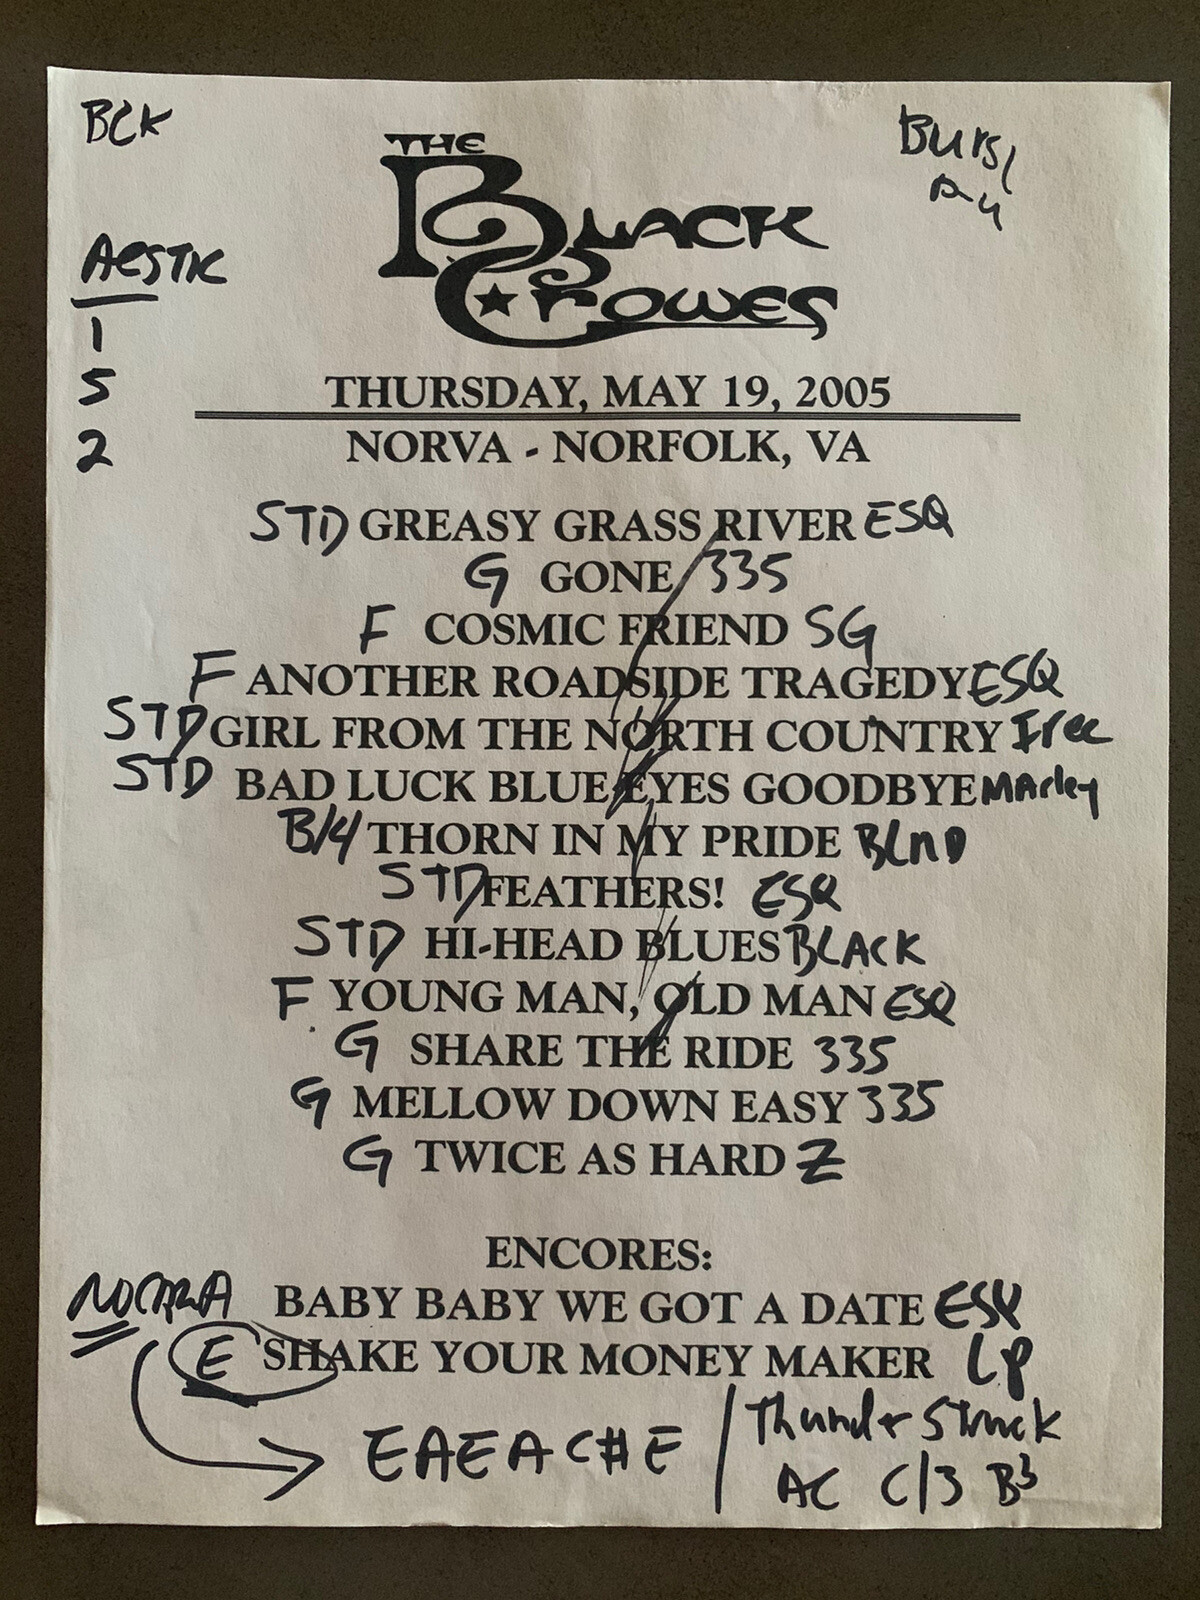 BCK
THE
BLACK
CROWES
1
5
2
THURSDAY, MAY 19, 2005
NORVA - NORFOLK, VA
STD GREASY GRASS RIVER ESQ
G GONE 335
F COSMIC FRIEND SG
F ANOTHER ROADSIDE TRAGEDY ESQ
STD GIRL FROM THE NORTH COUNTRY Free
STD BAD LUCK BLUE EYES GOODBYE MArley
B/4 THORN IN MY PRIDE BLND
STD FEATHERS! ESQ
STD HI-HEAD BLUES BLACK
F YOUNG MAN, OLD MAN ESQ
G SHARE THE RIDE 335
G MELLOW DOWN EASY 335
G TWICE AS HARD Z
ENCORES:
BABY BABY WE GOT A DATE ESQ
E SHAKE YOUR MONEY MAKER LP
EAEAC#E
Thunder Struck
AC C/3 B3